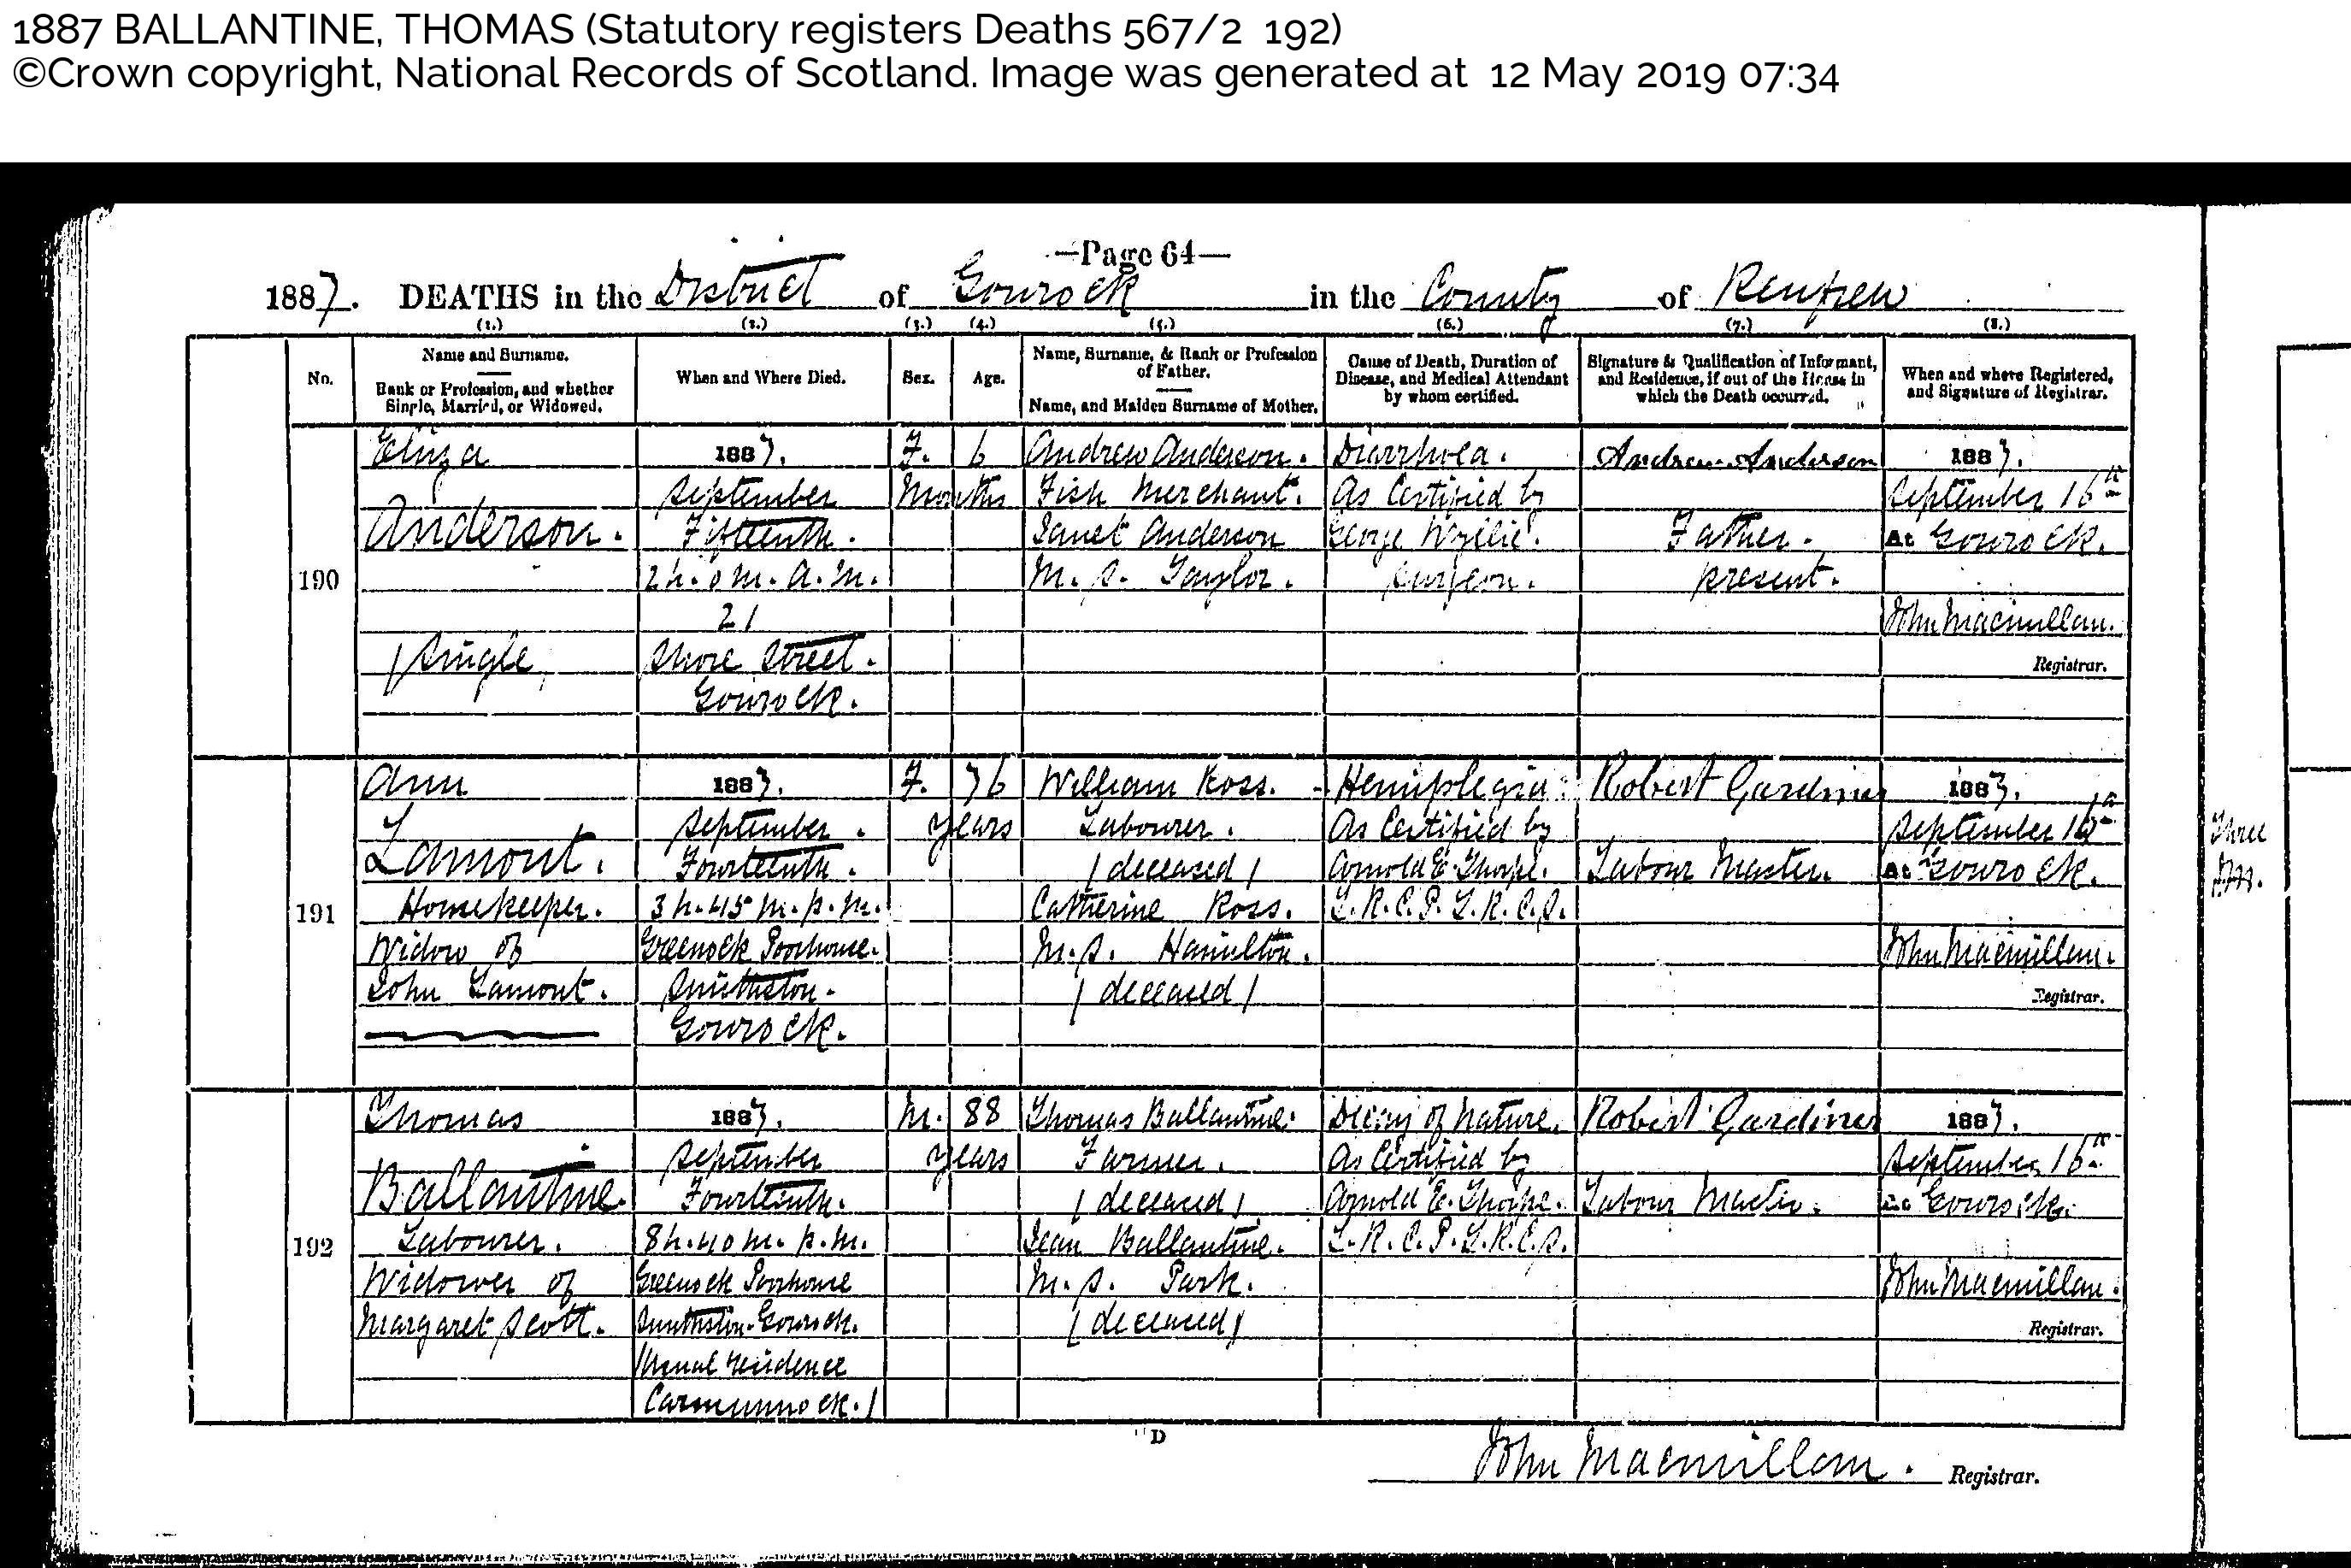 1887 BALLANTINE, THOMAS (Statutory registers Deaths 567/2 192)
©Crown copyright, National Records of Scotland. Image was generated at 12 May 2019 07:34
—Page 64—
1887. DEATHS in the District of Gourock in the County of Renfrew
(1.) (2.) (3.) (4.) (5.) (6.) (7.) (8.)
No.
Name and Surname.
Rank or Profession, and whether
Single, Married, or Widowed.
When and Where Died.
Sex.
Age.
Name, Surname, & Rank or Profession
of Father.
Name, and Maiden Surname of Mother.
Cause of Death, Duration of
Disease, and Medical Attendant
by whom certified.
Signature & Qualification of Informant,
and Residence, if out of the House in
which the Death occurred.
When and where Registered,
and Signature of Registrar.
190
Eliza
Anderson.
(Single)
1887.
September
Fifteenth.
2h. 0m. A.M.
21
Shore Street.
Gourock.
F.
6
Months
Andrew Anderson.
Fish Merchant.
Janet Anderson
M.S. Taylor.
Diarrhoea.
As Certified by
George Wyllie.
Surgeon.
Andrew Anderson
Father.
present.
1887.
September 16th
At Gourock.
John Macmillan.
Registrar.
191
Ann
Lamont.
Housekeeper.
Widow of
John Lamont.
1887.
September.
Fourteenth.
3h. 45m. p.m.
Greenock Poorhouse.
Smithston.
Gourock.
F.
76
years
William Ross.
Labourer.
(deceased)
Catherine Ross.
M.S. Hamilton.
(deceased)
Hemiplegia
As Certified by
Arnold E. Thorpe.
L.R.C.P. L.R.C.S.
Robert Gardiner
Labour Master.
1887.
September 16th
At Gourock.
John Macmillan.
Registrar.
192
Thomas
Ballantine.
Labourer.
Widower of
Margaret Scott.
1887.
September
Fourteenth.
8h. 40m. p.m.
Greenock Poorhouse
Smithston. Gourock.
(Usual residence
Carmunnock.)
M.
88
years
Thomas Ballantine.
Farmer.
(deceased)
Jean Ballantine.
M.S. Park.
(deceased)
Decay of Nature.
As Certified by
Arnold E. Thorpe.
L.R.C.P. L.R.C.S.
Robert Gardiner
Labour Master.
1887.
September 16th
At Gourock.
John Macmillan.
Registrar.
D
John Macmillan. Registrar.
Three